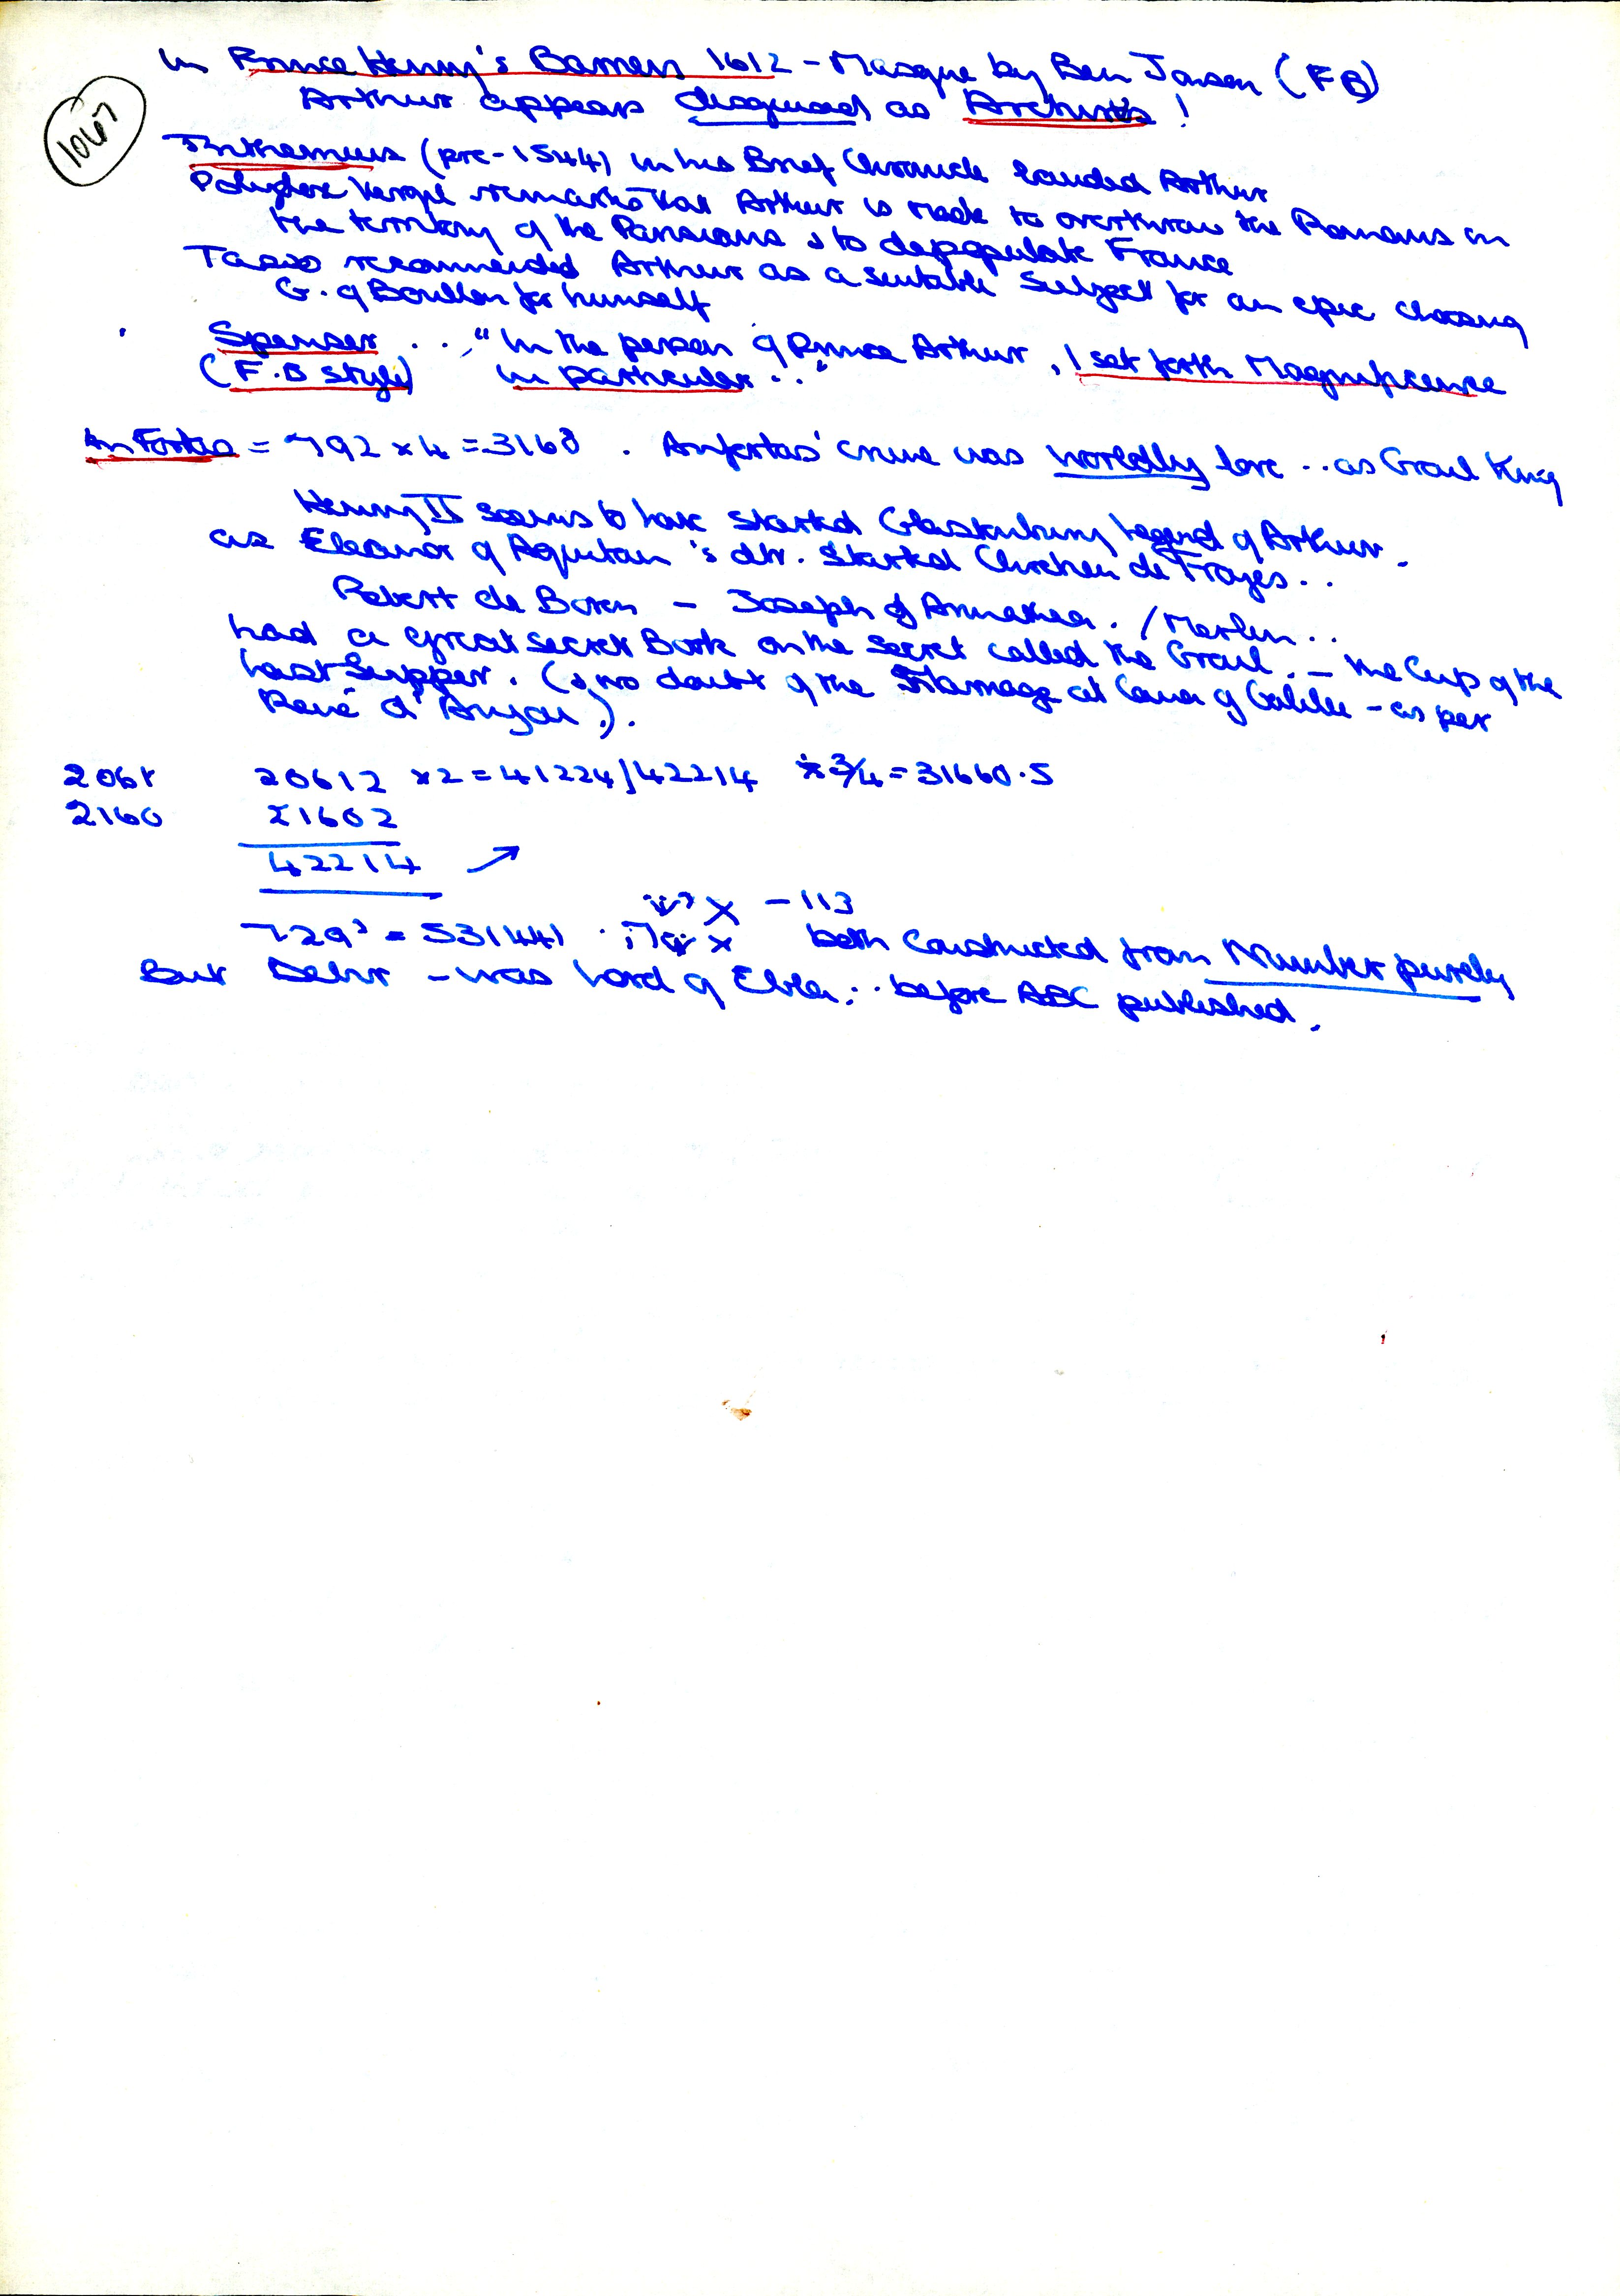 1067
In Prince Henry's Barriers 1612 - Masque by Ben Jonson (FB)
Arthur appears disguised as Arcturus !
Trithemius (pre-1544) in his Brief Chronicle lauded Arthur
Polydore Vergil remarks that Arthur is made to overthrow the Romans in
the territory of the & to depopulate France
Tasso recommended Arthur as a suitable subject for an epic choosing
G. of Bouillon for himself
Spenser ... "In the person of Prince Arthur, I set forth Magnificence
(F.B style) in particular .."
Anfortas = 792 x 4 = 3168 . Anfortas' crime was worldly love .. as Grail King
Henry II seems to have started Glastonbury legend of Arthur.
as Eleanor of Aquitain 's dtr. started Chretien de Troyes ..
Robert de Boron - Joseph of Arimathea . / Merlin ..
had a great secret Book on the secret called the Grail . - the Cup of the
Last Supper . (& no doubt of the Marriage at Cana of Galilee - as per
René d'Anjou.).
2061 20612 x2 = 41224 / 42214 x 3/4 = 31660.5
2160 21602
42214
729² = 531441 X - 113
both constructed from Number purely
But - was Lord of .. before ABC published .